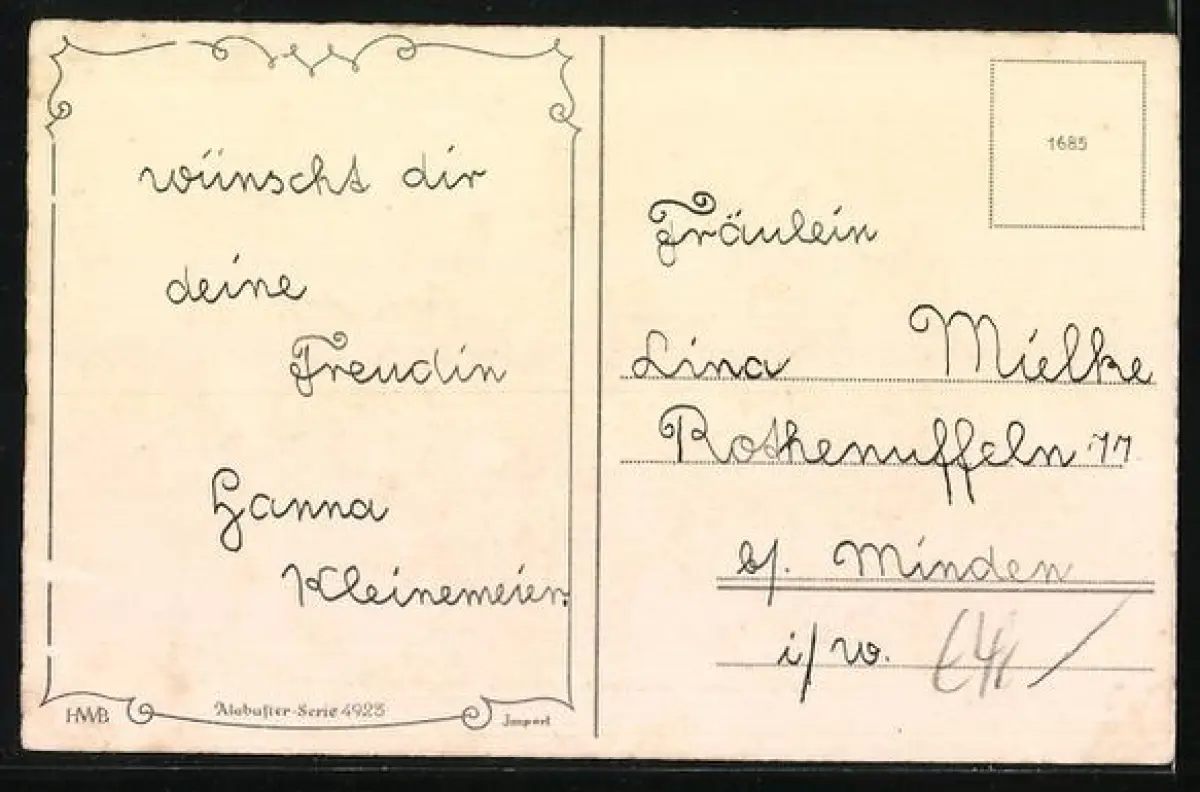 wünscht dir
deine
Freudin
Hanna
Kleinemeier.
HWB
Alabaster-Serie 4923
Import
1685
Fräulein
Lina Mielke
Rothenuffeln 77
b/. Minden
i/w.